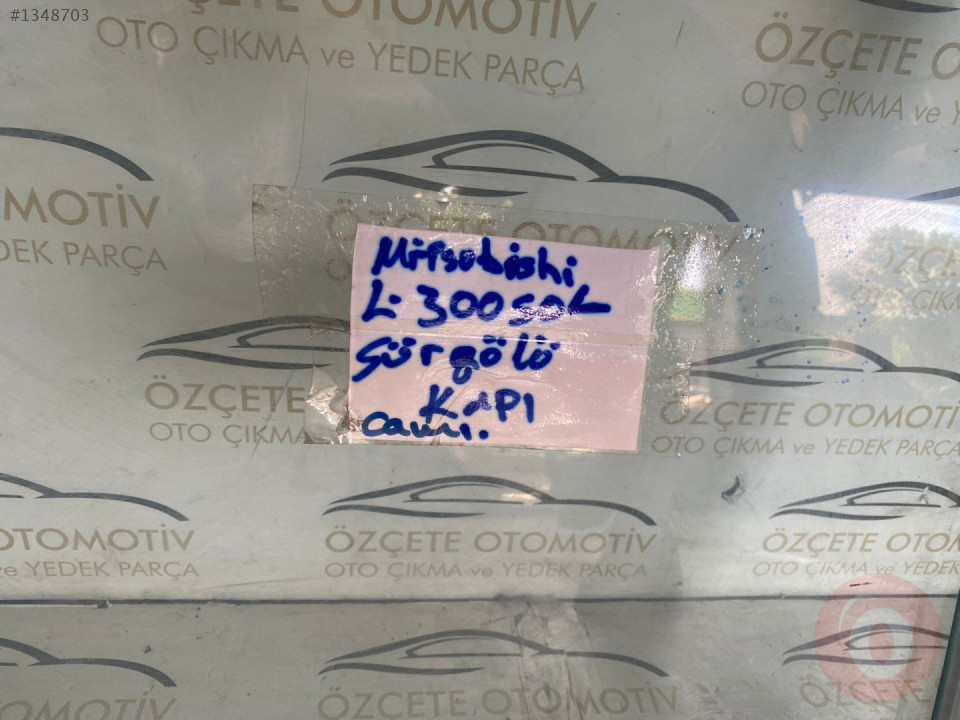 #1348703
ÖZÇETE OTOMOTİV
OTO ÇIKMA ve YEDEK PARÇA
ÖZÇETE O
OTO ÇIKMA ve Y
OMOTİV
YEDEK PARÇA
ÖZÇETE OTOMOTİV
Mitsubishi
L-300 SOL
Sürgülü
KAPI
Camı.
ÖZÇETE
OTO ÇIKMA
ÖZÇETE OTOMOTİV
OTO ÇIKMA ve YEDEK PARÇA
OTOMOTİV
ve YEDEK PARÇA
ÖZÇETE OTOMOTİV
OTO ÇIKMA ve YEDEK PARÇA
ÖZÇETE OTOMOTİV
OTO ÇIKMA ve YEDEK
OTOMOTİV
ÖZÇETE OTOMOTİV